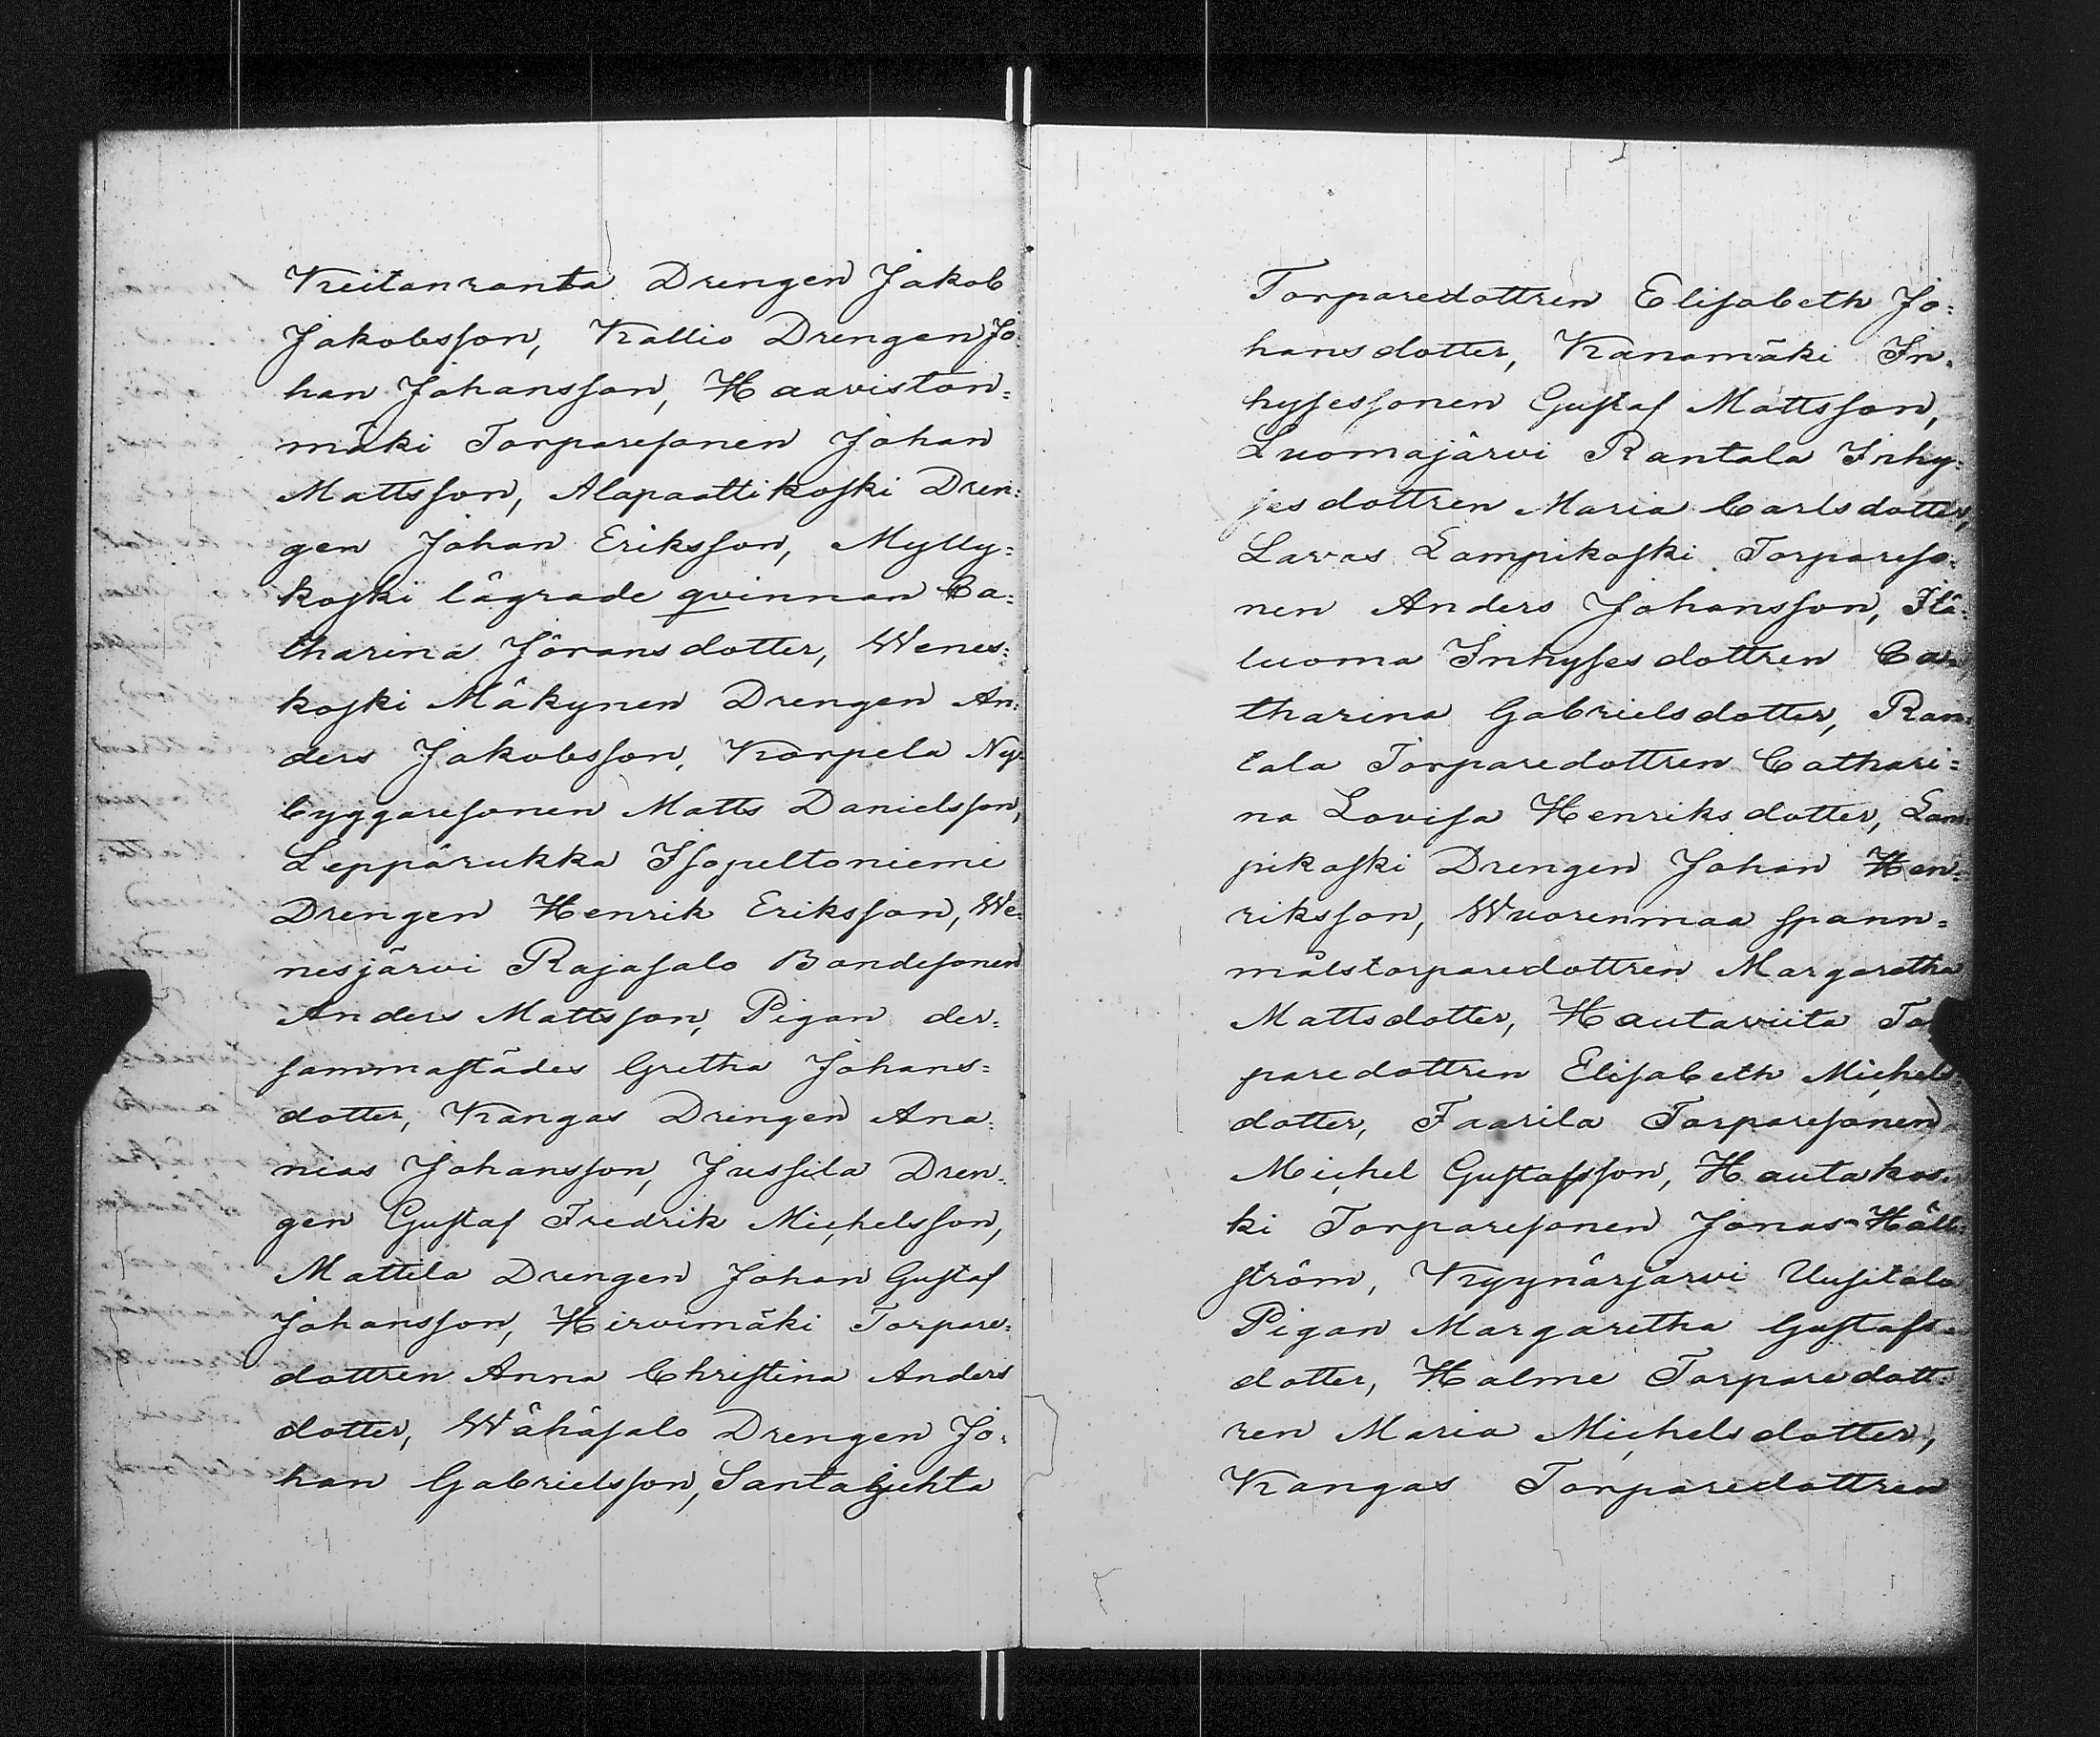 Keitanranta Drengen Jakob
Jakobsson, Kallio Drengen Jo
han Johansson, Haaviston=
mäki Torparesonen Johan
Mattsson, Alapaattikoski Dren=
gen Johan Eriksson, Mylly=
koski lägrade qvinnan Ca=
tharina Jöransdotter, Wenes=
koski Mäkynen Drengen An=
ders Jakobsson, Korpela Ny=
byggaresonen Matts Danielsson,
Leppärukka Isopeltoniemi
Drengen Henrik Eriksson, We=
nesjärvi Rajasalo Bondesonen
Anders Mattsson, Pigan der=
sammastädes Gretha Johans=
dotter, Kangas Drengen Ana=
nias Johansson, Jussila Dren=
gen Gustaf Fredrik Michelsson,
Mattila Drengen Johan Gustaf
Johansson, Hirvimäki Torpare=
dottren Anna Christina Anders
dotter, Wähäsalo Drengen Jo=
han Gabrielsson, Santaljehta
Torparedottren Elisabeth Jo=
hansdotter, Kanamäki In=
hysessonen Gustaf Mattsson,
Luomajärvi Rantala Inhy=
sesdottren Maria Carlsdotter,
Larvas Lampikoski Torpareso=
nen Anders Johansson, Itä=
luoma Inhysesdottren Ca=
tharina Gabrielsdotter, Ran=
tala Torparedottren Cathari=
na Lovisa Henriksdotter, Lam=
pikoski Drengen Johan Hen=
riksson, Wuorenmaa spann=
målstorparedottren Margaretha
Mattsdotter, Hautaviita To
paredottren Elisabeth Michels
dotter, Faarila Torparesonen
Michel Gustafsson, Hautakos=
ki Torparesonen Jonas Häll=
ström, Kyynärjärvi Uusitalo
Pigan Margaretha Gustafs=
dotter, Halme Torparedott=
ren Maria Michelsdotter,
Kangas Torparedottren